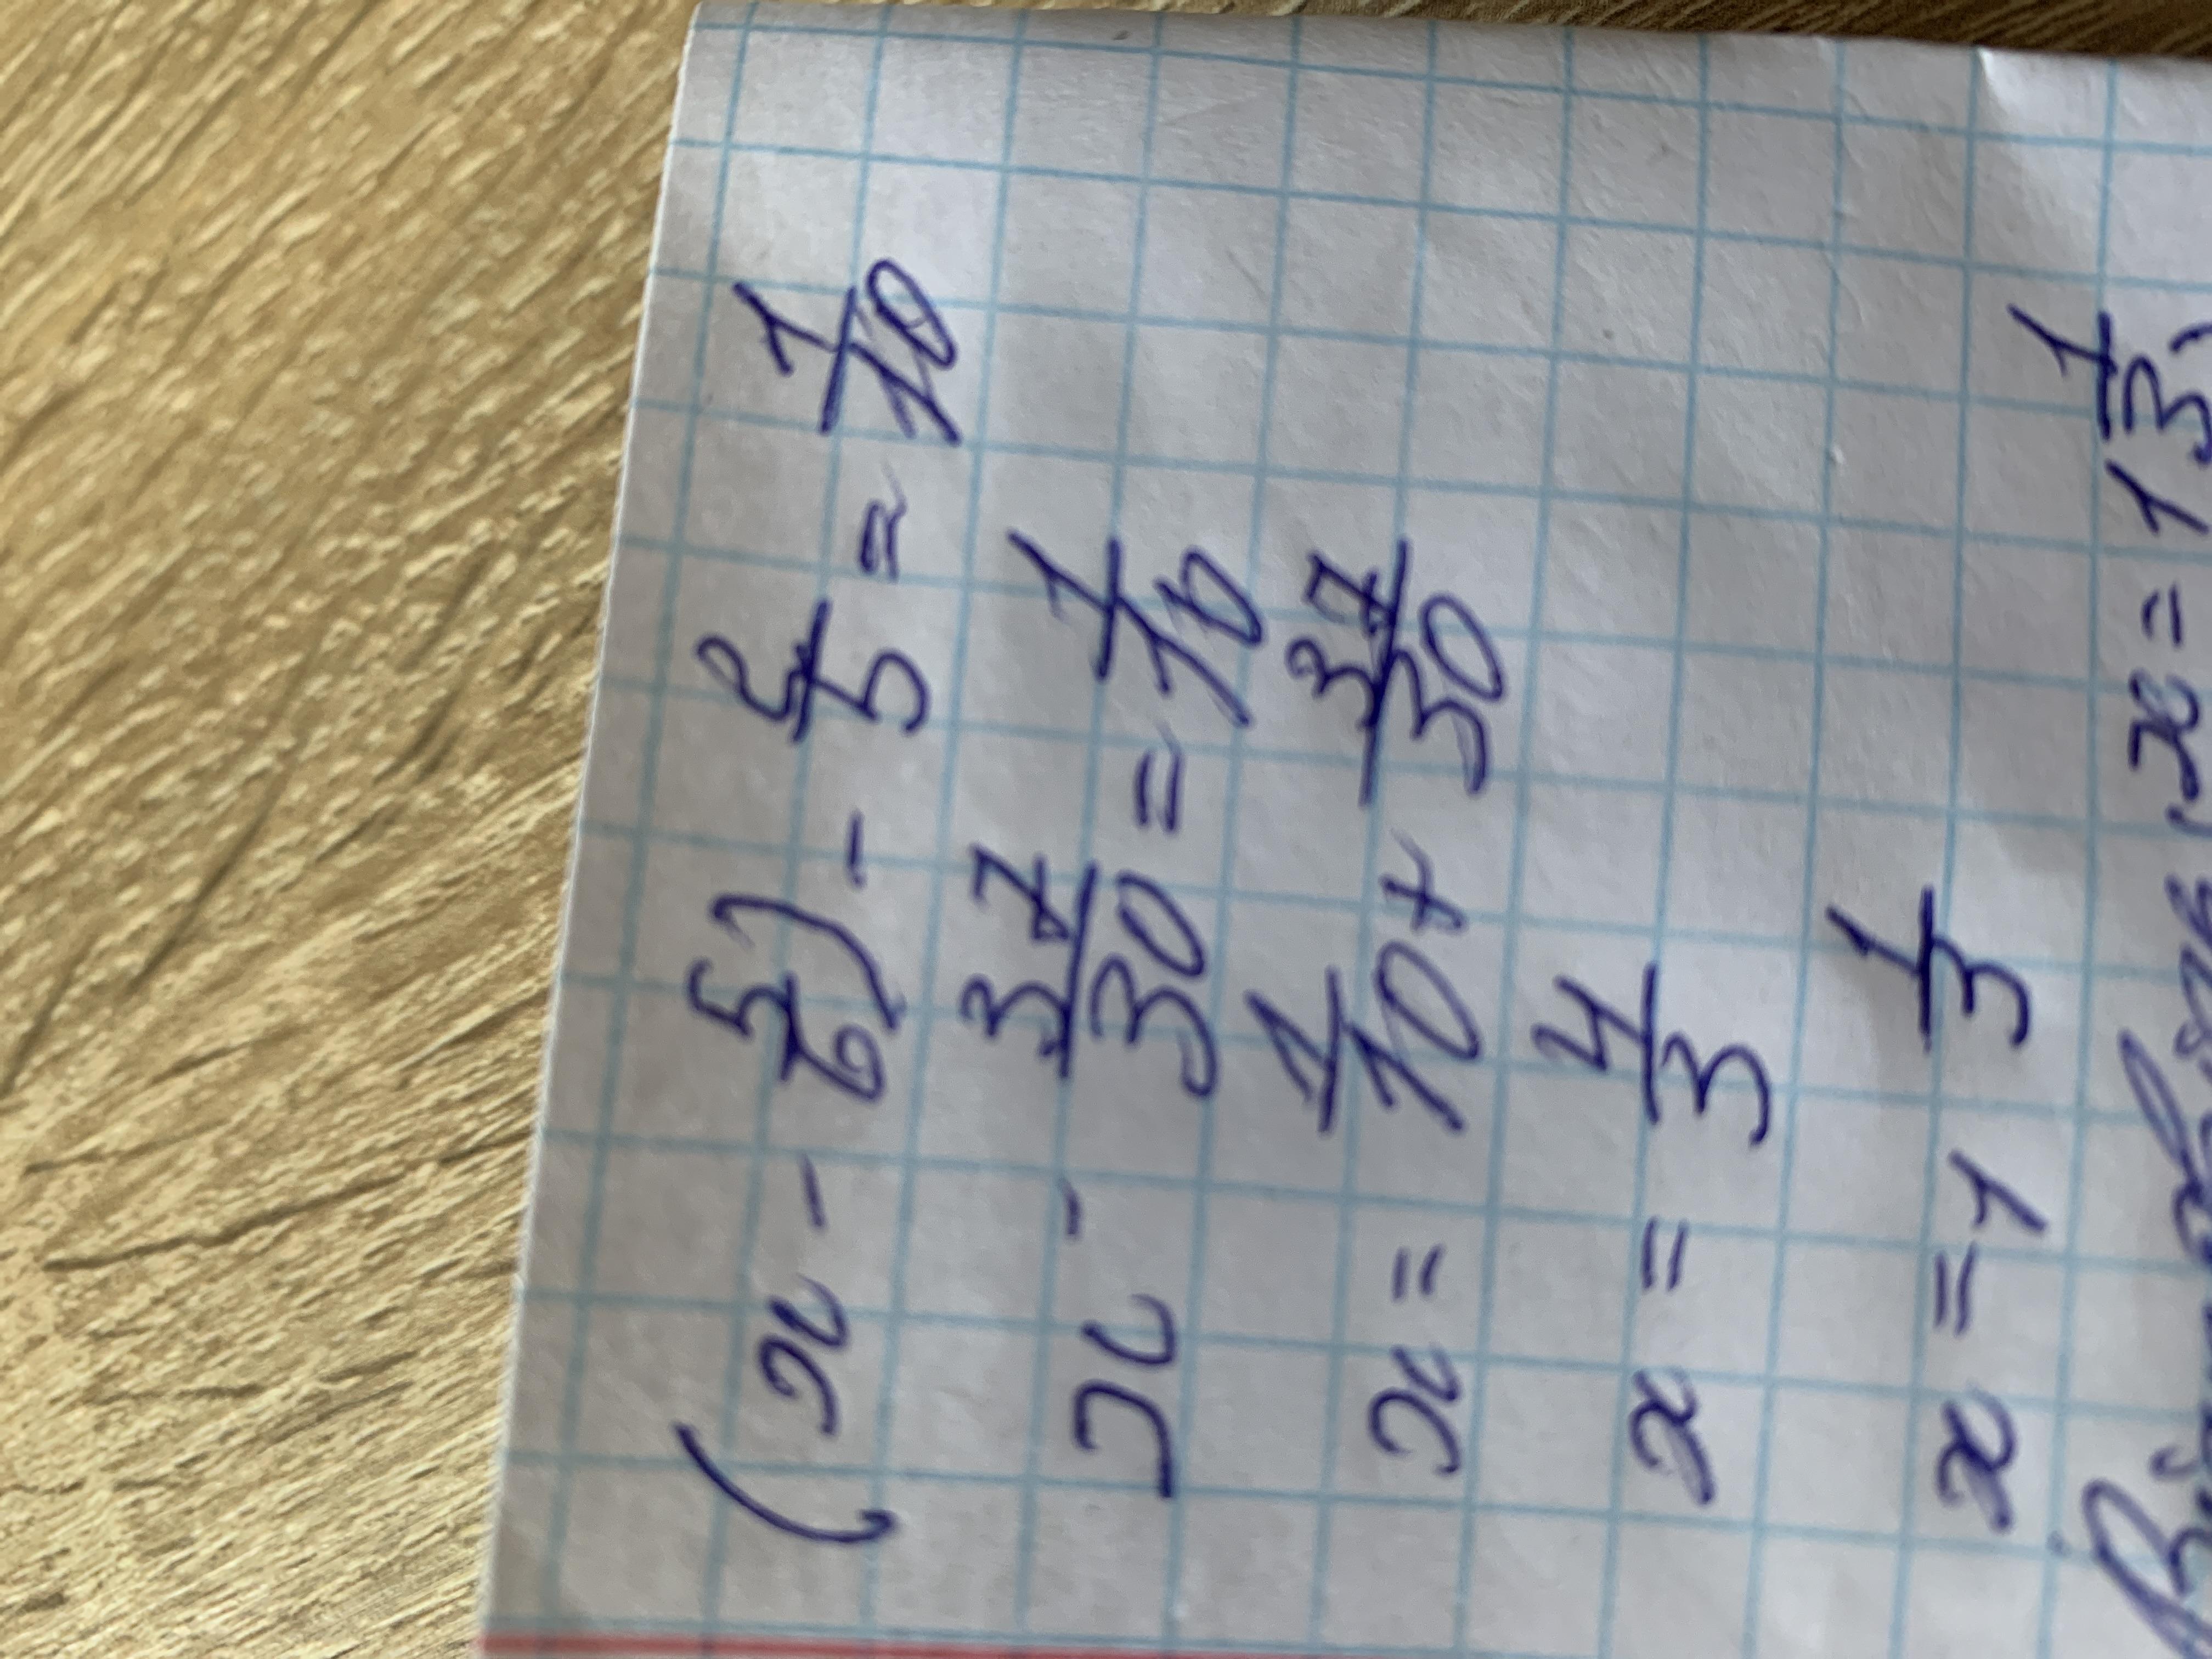 (x - 5/6) - 2/5 = 1/10
x - 37/30 = 1/10
x = 1/10 + 37/30
x = 4/3
x = 1 1/3
x = 1 1/3